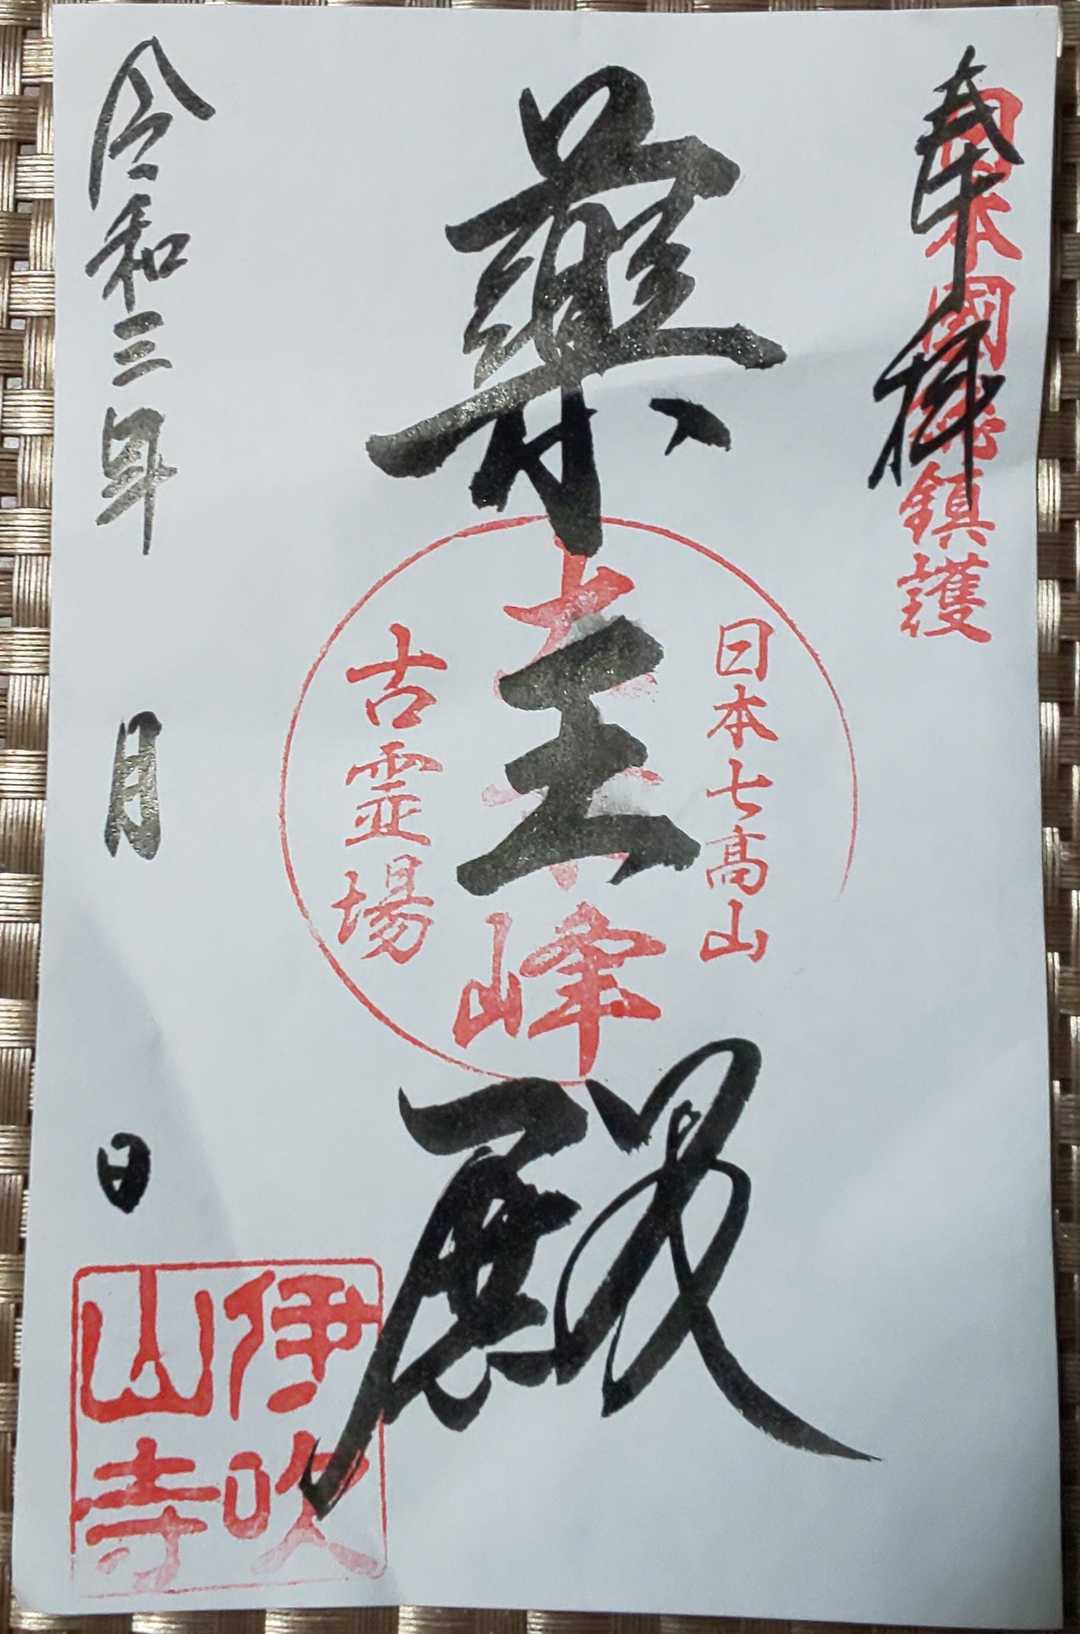 奉拝
日本國 鎮護
薬王殿
日本七高山
大乗峰
古霊場
令和三年 月 日
伊吹山寺